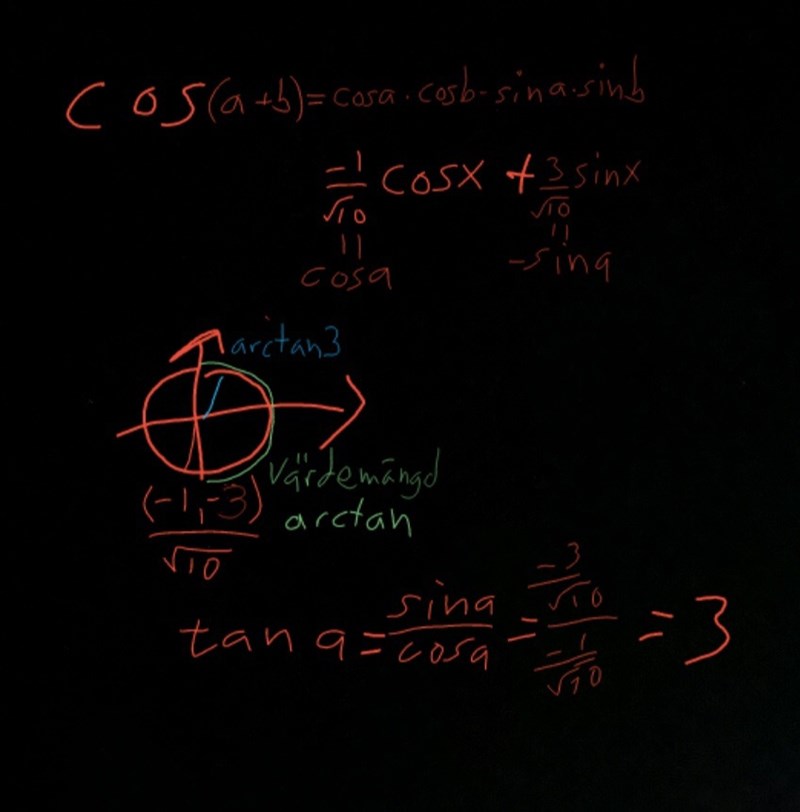 cos(a+b)=cosa·cosb-sina·sinb
-1/√10 cosx + 3/√10 sinx
= =
cosa -sina
arctan3
Värdemängd
arctan
(-1,-3)/√10
tan a = sina/cosa = (-3/√10)/(-1/√10) = 3